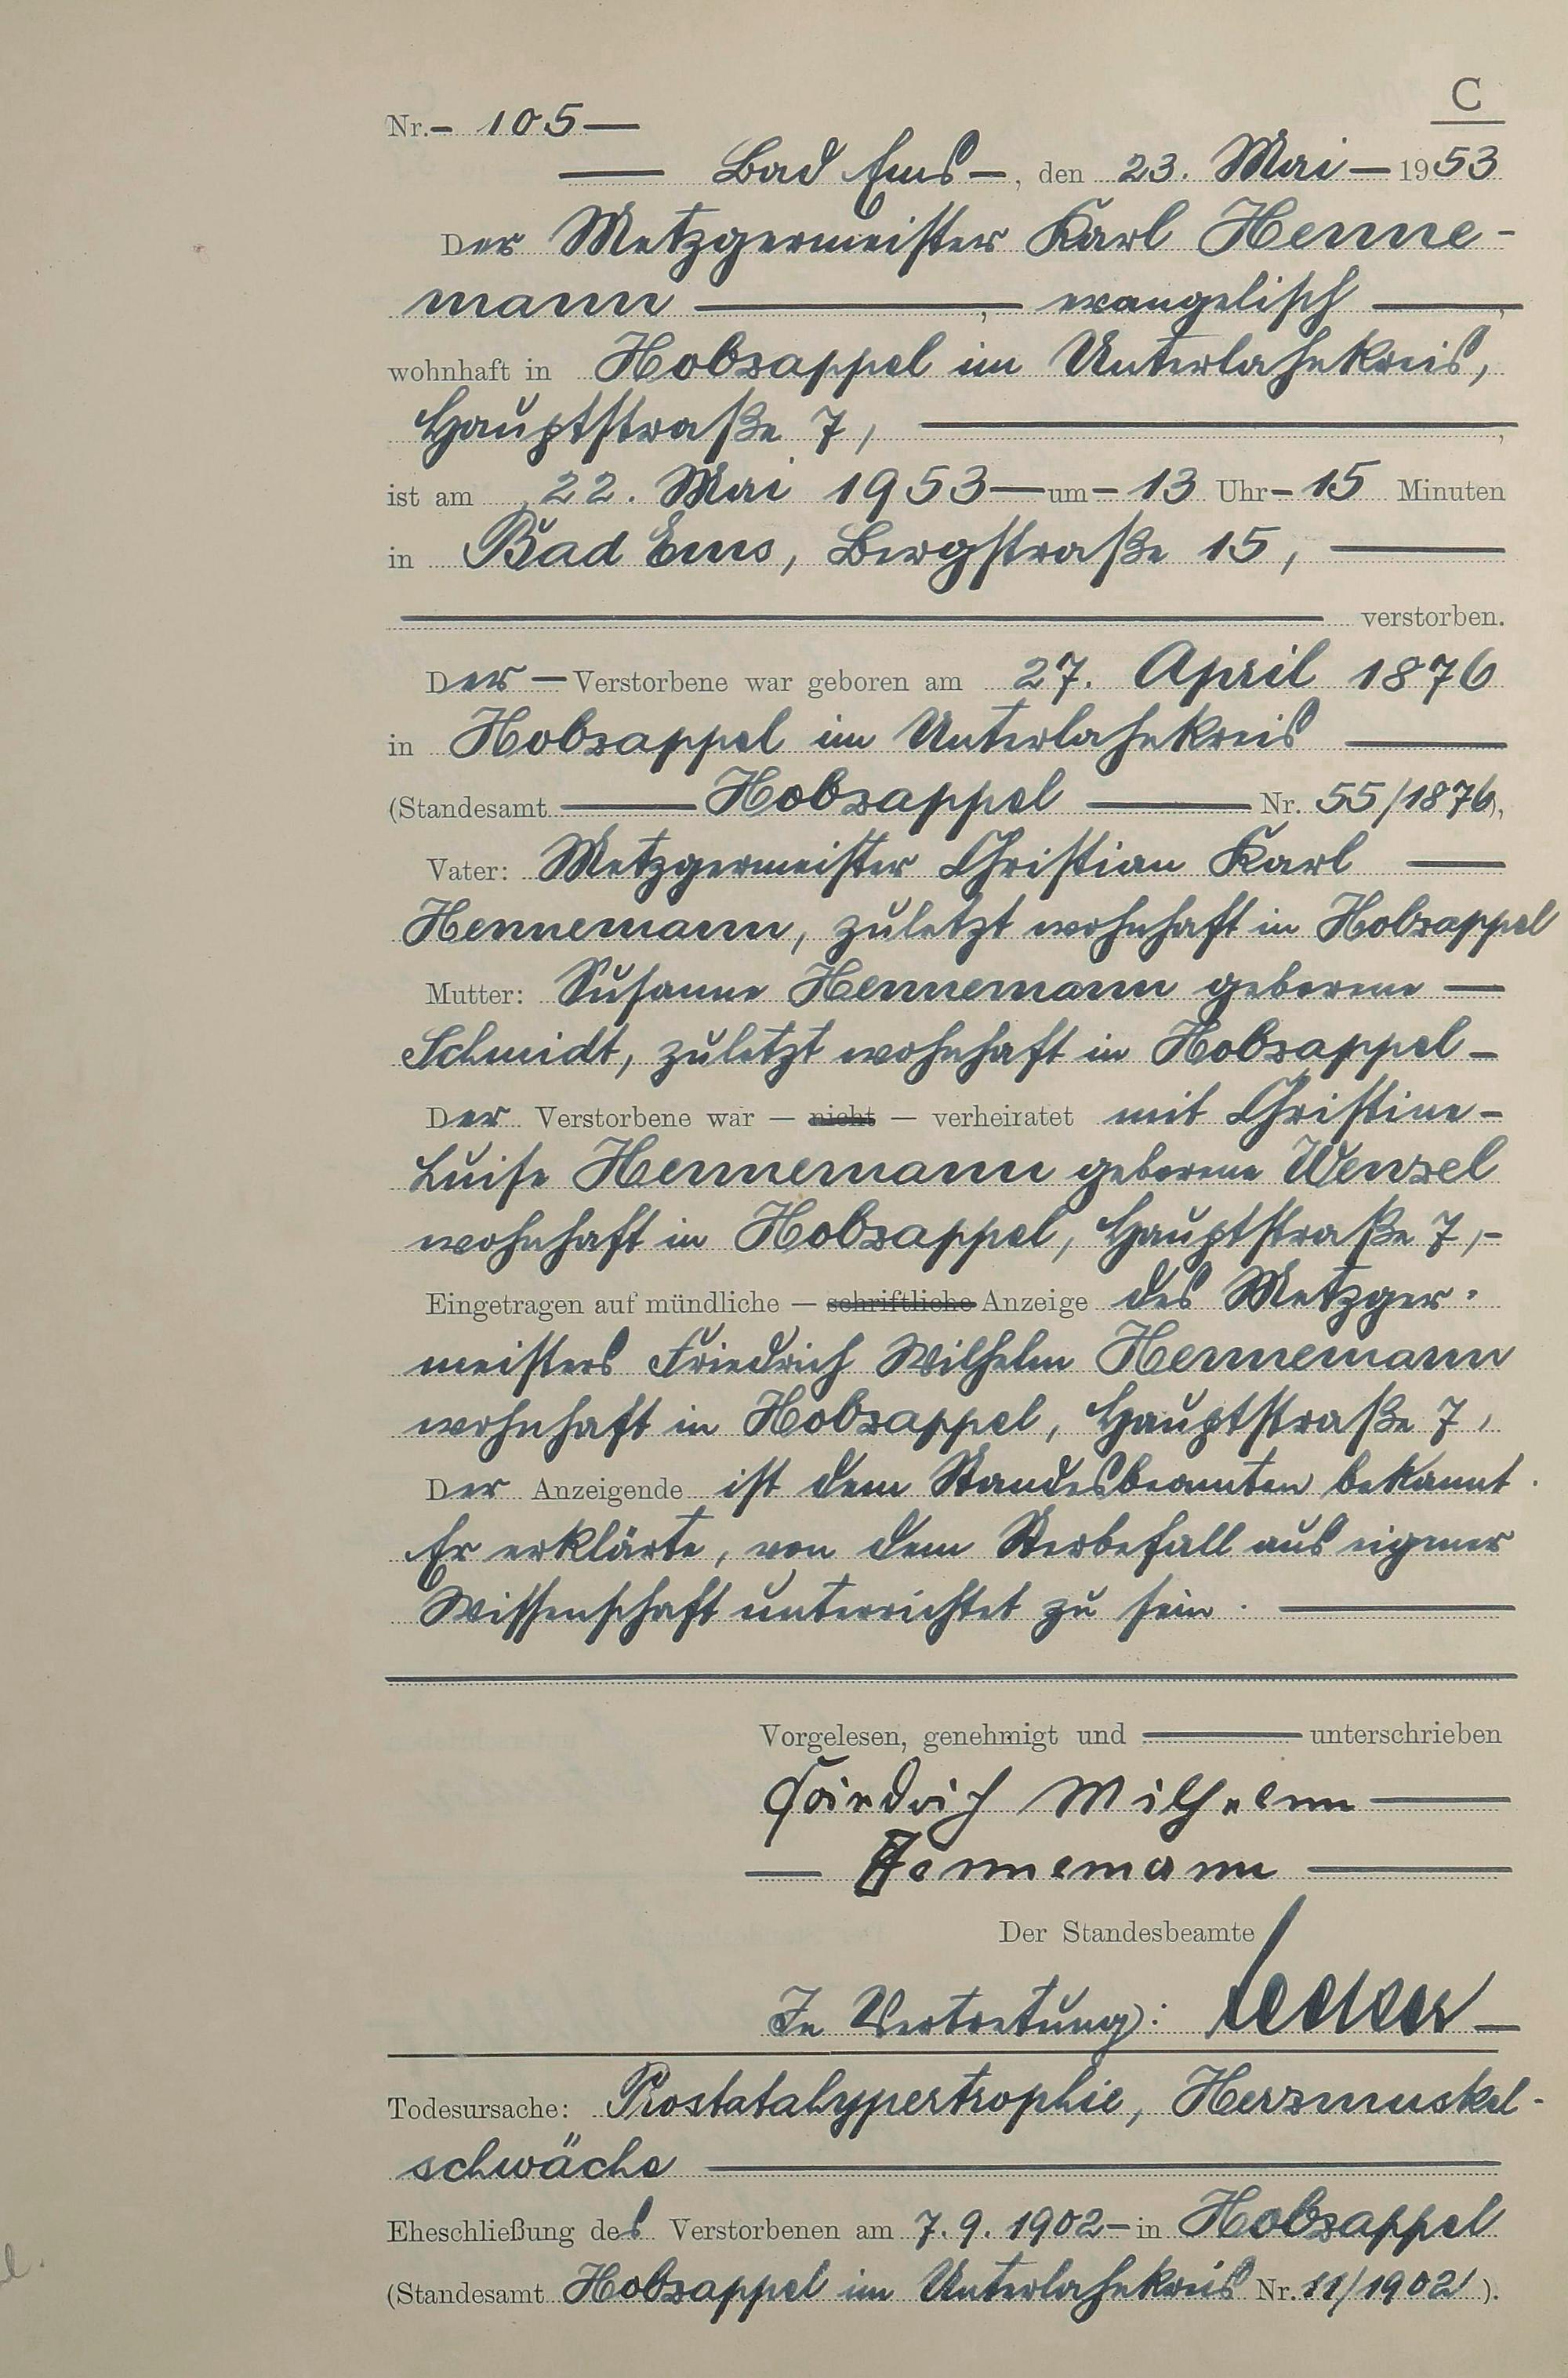 C
Nr. 105
Bad Ems, den 23. Mai 1953
Der Metzgermeister Karl Henne-
mann, evangelisch,
wohnhaft in Holzappel im Unterlahnkreis,
Hauptstraße 7,
ist am 22. Mai 1953 um 13 Uhr 15 Minuten
in Bad Ems, Bergstraße 15,
verstorben.
Der Verstorbene war geboren am 27. April 1876
in Holzappel im Unterlahnkreis
(Standesamt Holzappel Nr. 55/1876),
Vater: Metzgermeister Christian Karl
Hennemann, zuletzt wohnhaft in Holzappel
Mutter: Susanne Hennemann geborene
Schmidt, zuletzt wohnhaft in Holzappel
Der Verstorbene war — nicht — verheiratet mit Christine
Luise Hennemann geborene Wenzel
wohnhaft in Holzappel, Hauptstraße 7,
Eingetragen auf mündliche — schriftliche Anzeige des Metzger-
meisters Friedrich Wilhelm Hennemann
wohnhaft in Holzappel, Hauptstraße 7,
Der Anzeigende ist dem Standesbeamten bekannt.
Er erklärte, von dem Sterbefall aus eigener
Wissenschaft unterrichtet zu sein.
Vorgelesen, genehmigt und unterschrieben
Friedrich Wilhelm
Hennemann
Der Standesbeamte
In Vertretung:
Todesursache: Prostatahypertrophie, Herzmuskel-
schwäche
Eheschließung des Verstorbenen am 7.9.1902 in Holzappel
(Standesamt Holzappel im Unterlahnkreis Nr. 11/1902).